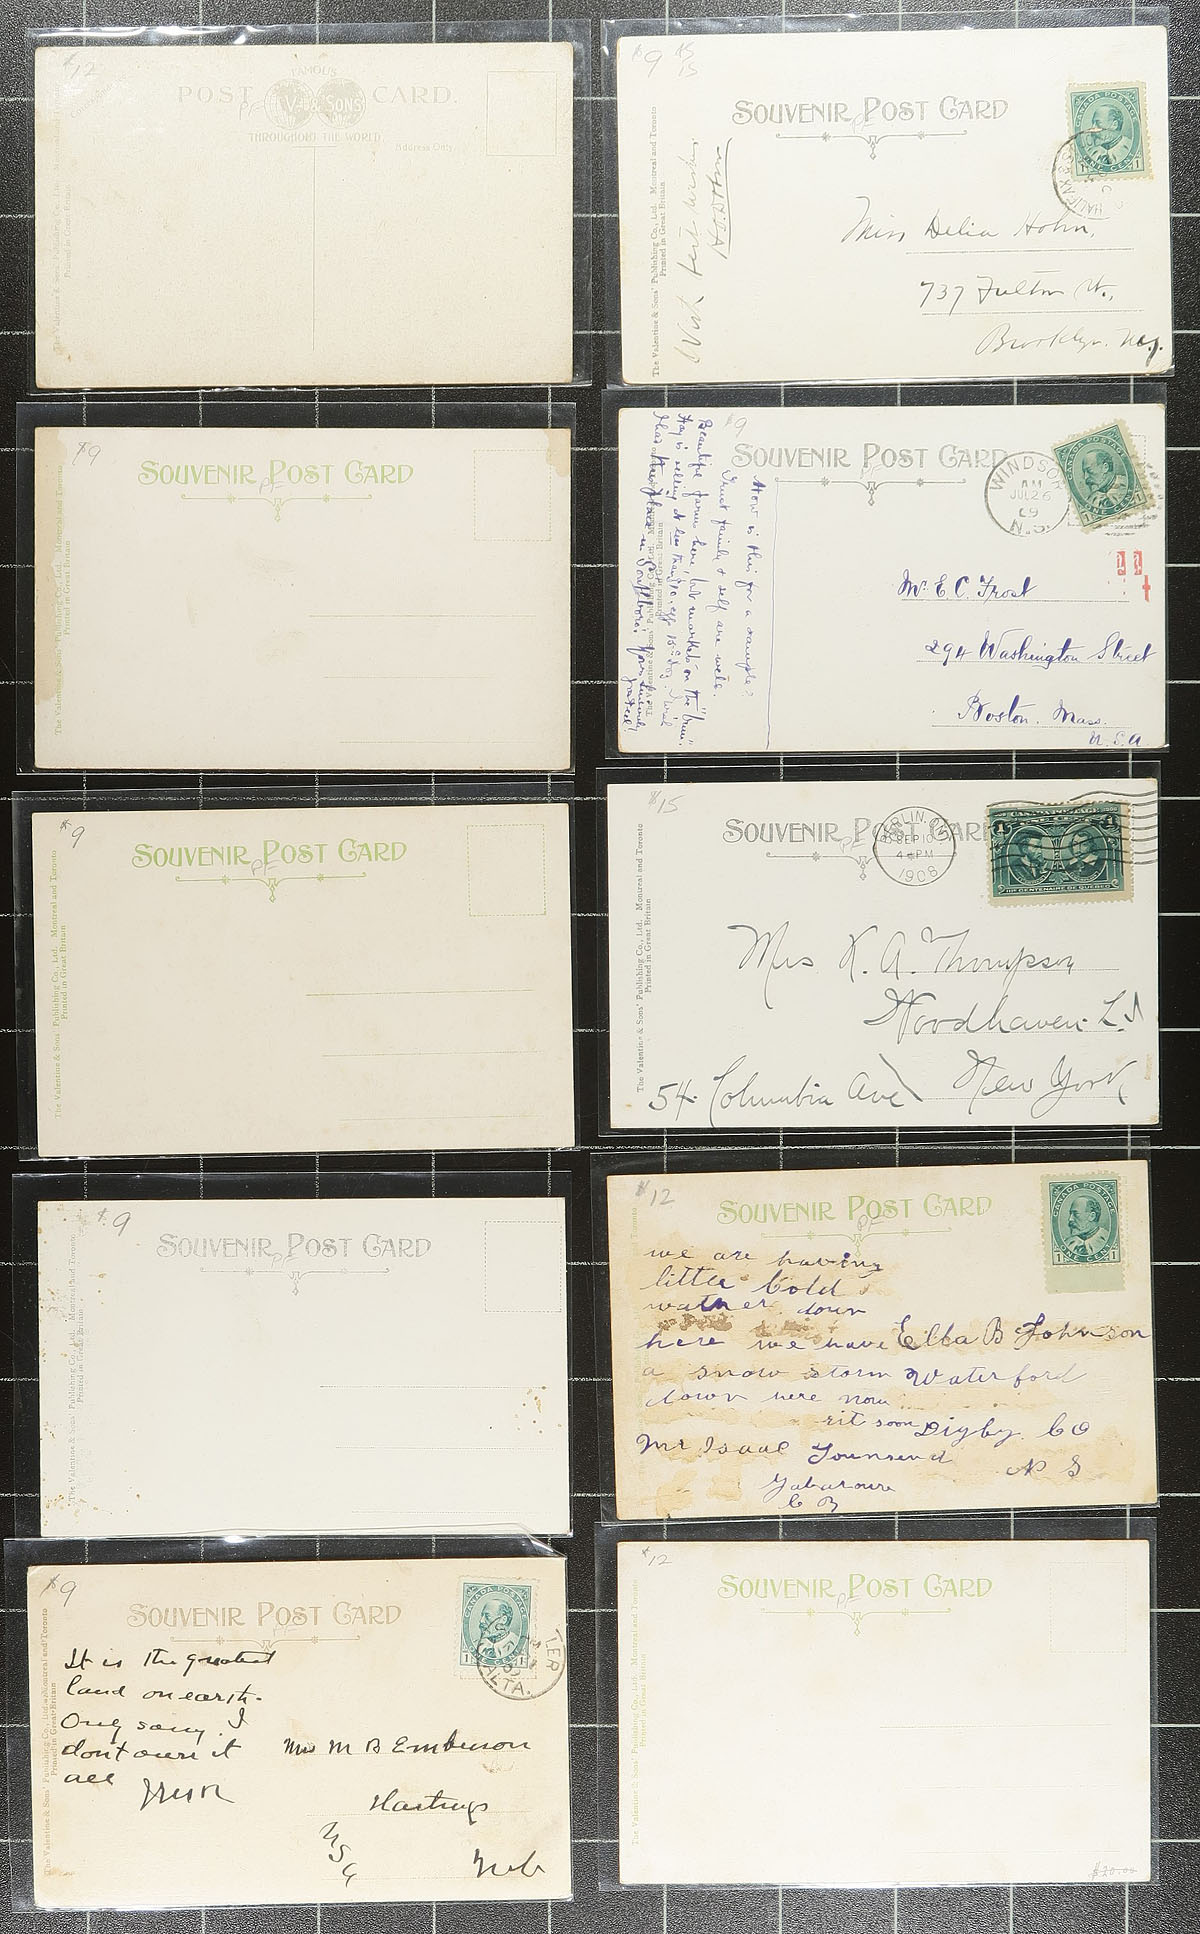 $12
FAMOUS
POST CARD.
V. & SONS
THROUGHOUT THE WORLD
Address Only
The Valentine & Sons' Publishing Co., Ltd. Montreal and Toronto
Printed in Great Britain
$9
SOUVENIR POST CARD
PE
The Valentine & Sons' Publishing Co., Ltd. Montreal and Toronto
Printed in Great Britain
$9
SOUVENIR POST CARD
PE
The Valentine & Sons' Publishing Co., Ltd. Montreal and Toronto
Printed in Great Britain
$9
SOUVENIR POST CARD
PE
The Valentine & Sons' Publishing Co., Ltd. Montreal and Toronto
Printed in Great Britain
$9
SOUVENIR POST CARD
The Valentine & Sons' Publishing Co., Ltd. Montreal and Toronto
Printed in Great Britain
CANADA POSTAGE
1 ONE CENT 1
ALTA.
It is the greatest
land on earth.
Only sorry I
dont own it
all
Mrs M B Emberson
Hastings
Neb
USA
$9
15
SOUVENIR POST CARD
The Valentine & Sons' Publishing Co., Ltd. Montreal and Toronto
Printed in Great Britain
CANADA POSTAGE
1 ONE CENT 1
HALIFAX
With best wishes
Miss Delia Hohn,
737 Fulton St.,
Brooklyn. N.y.
$9
SOUVENIR POST CARD
CANADA POSTAGE
ONE CENT 1
WINDSOR
AM
JUL 26
09
N.S.
How is this for a sample?
Trust family & self are well.
Beautiful farms here, but markets on the "bum".
Hay is selling at less than
Mr. E. C. Frost
294 Washington Street
Boston. Mass.
U.S.A
$15
SOUVENIR POST CARD
The Valentine & Sons' Publishing Co., Ltd. Montreal and Toronto
Printed in Great Britain
BERLIN. ONT
SEP 10
4 PM
1908
CANADA POSTAGE
IIIe CENTENAIRE DE QUEBEC
Mrs K. A. Thompson
Woodhaven L.I
54 Columbia Ave New York
$12
SOUVENIR POST CARD
PE
CANADA POSTAGE
1 ONE CENT 1
we are having
little Cold
wather down
here we have
a snow storm
down here now
rit soon
Ella B Johnson
Waterford
Digby Co
N S
Mr Isaac Townsend
Gabarouse
C B
$12
SOUVENIR POST CARD
PE
The Valentine & Sons' Publishing Co., Ltd. Montreal and Toronto
Printed in Great Britain
$20.00